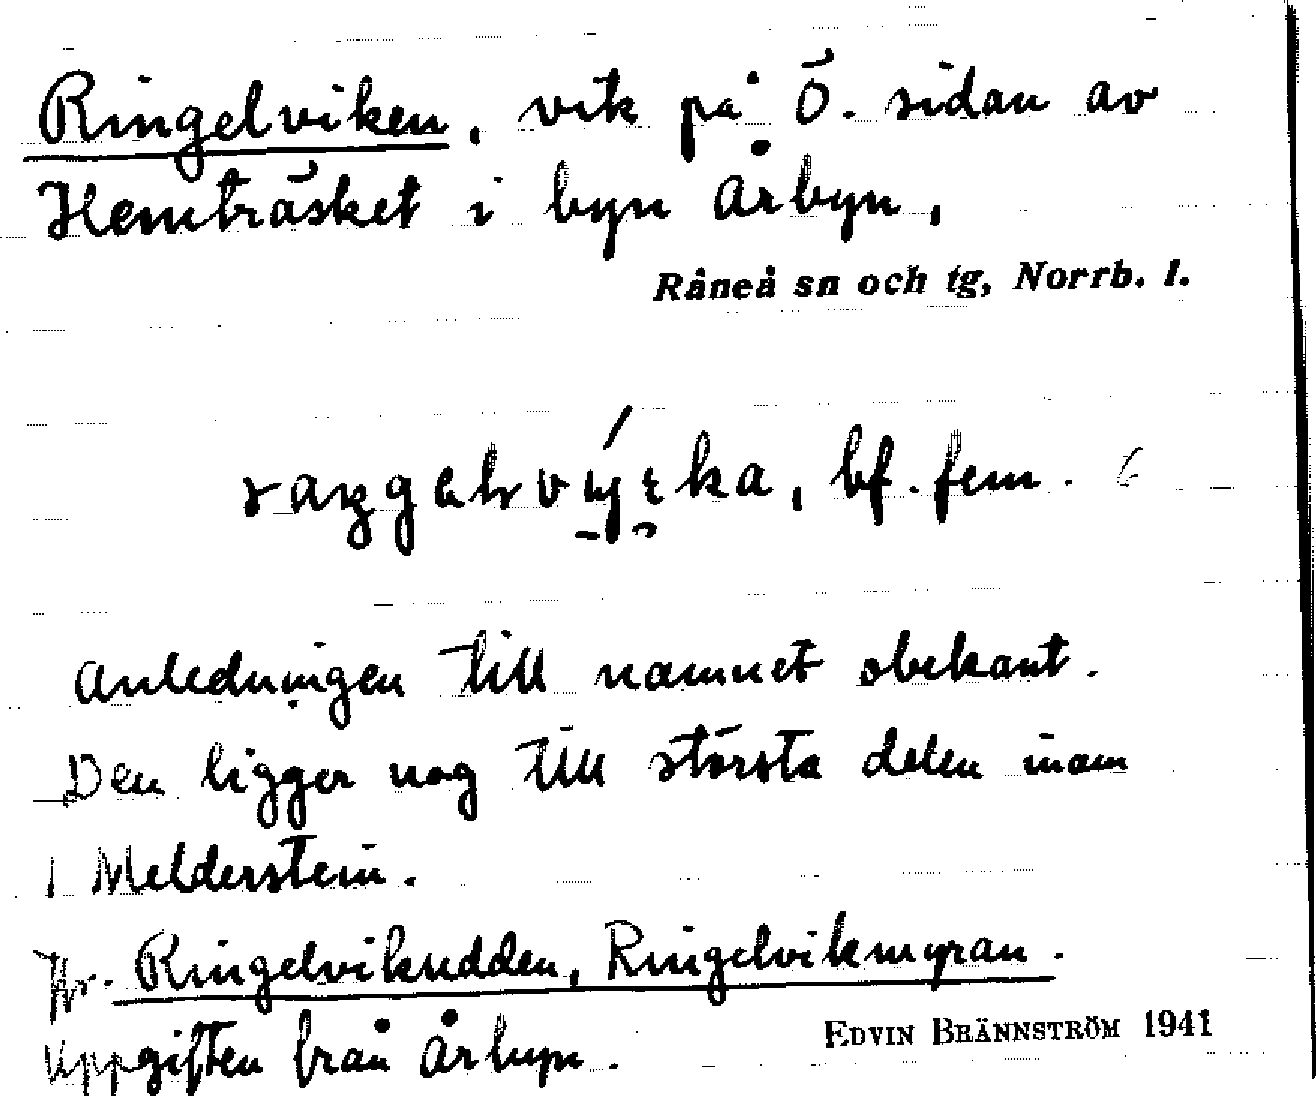 Ringelviken, vik på Ö. sidan av
Hemträsket i byn Årbyn,
Råneå sn och tg, Norrb. l.
bf. fem.
Anledningen till namnet obekant.
Den ligger nog till största delen inom
Melderstein.
Jfr. Ringelvikudden, Ringelvikmyran.
Uppgiften från Årbyn.
EDVIN BRÄNNSTRÖM 1941